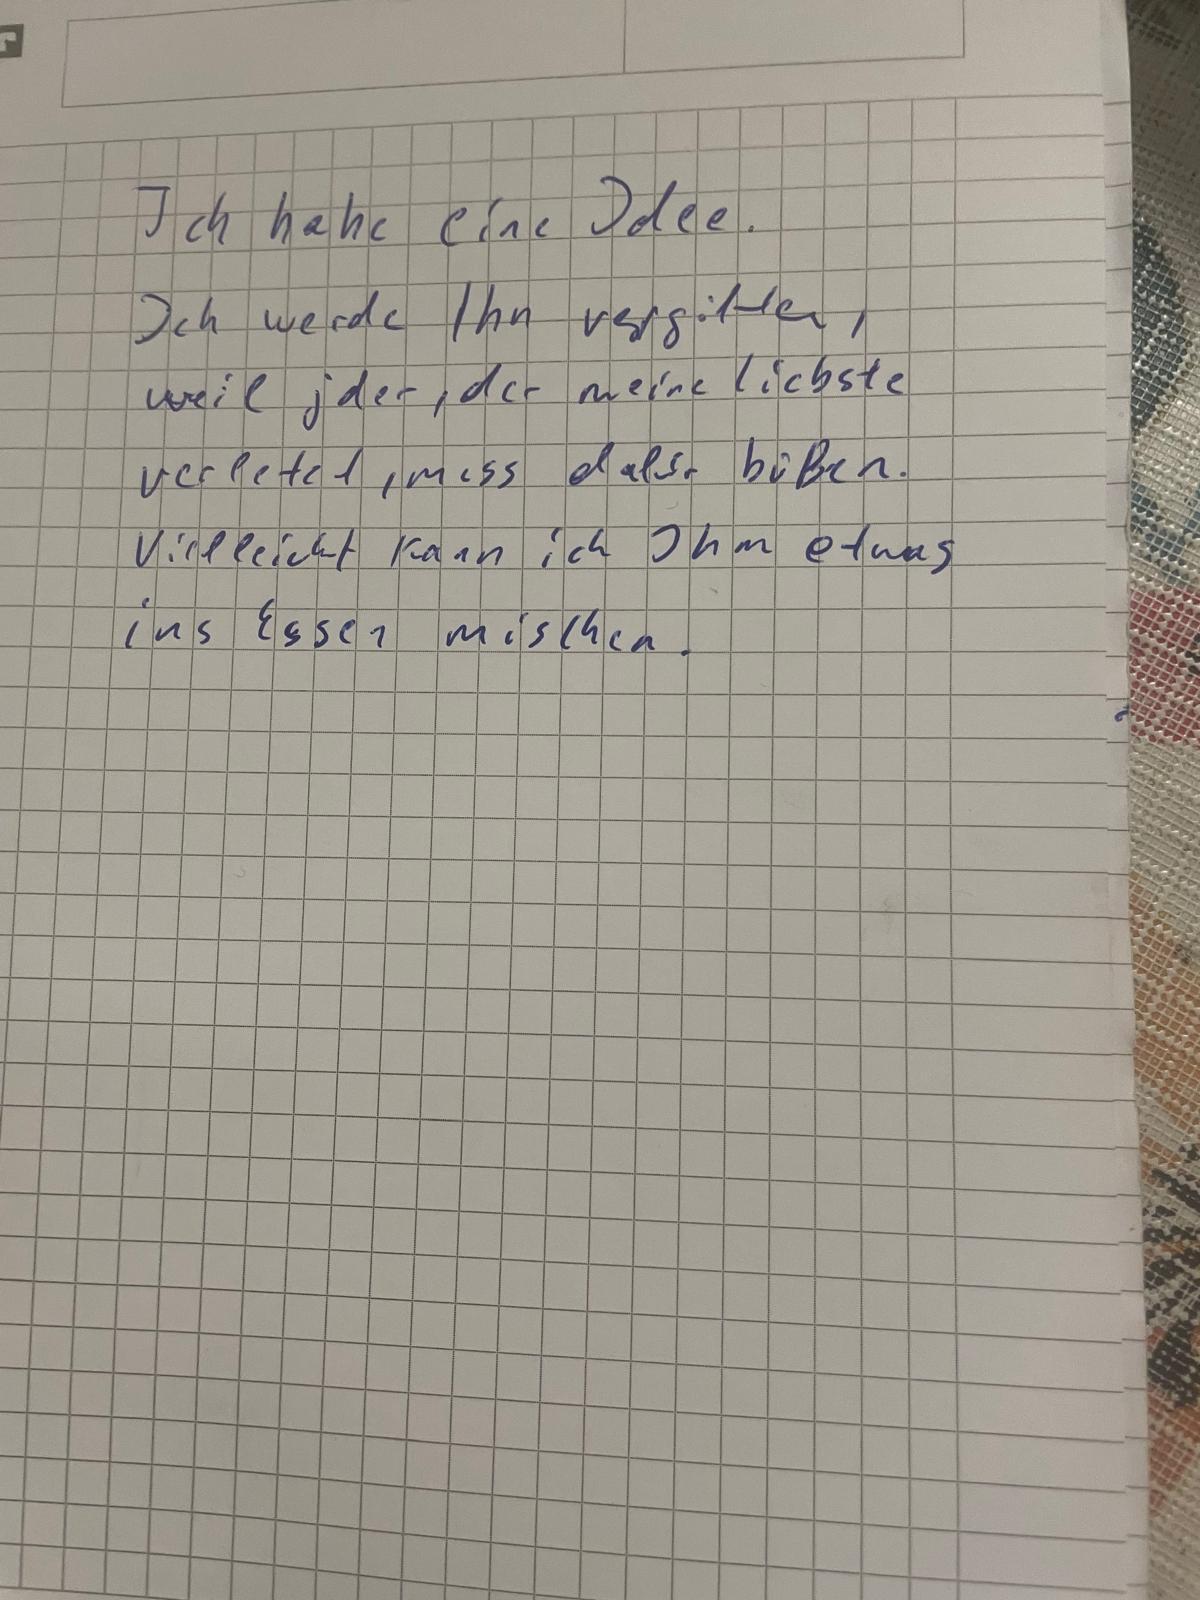 Ich habe eine Idee.
Ich werde Ihn vergiften,
weil jder, der meine liebste
verletzt, muss dafür büßen.
Vielleicht kann ich Ihm etwas
ins Essen mischen.